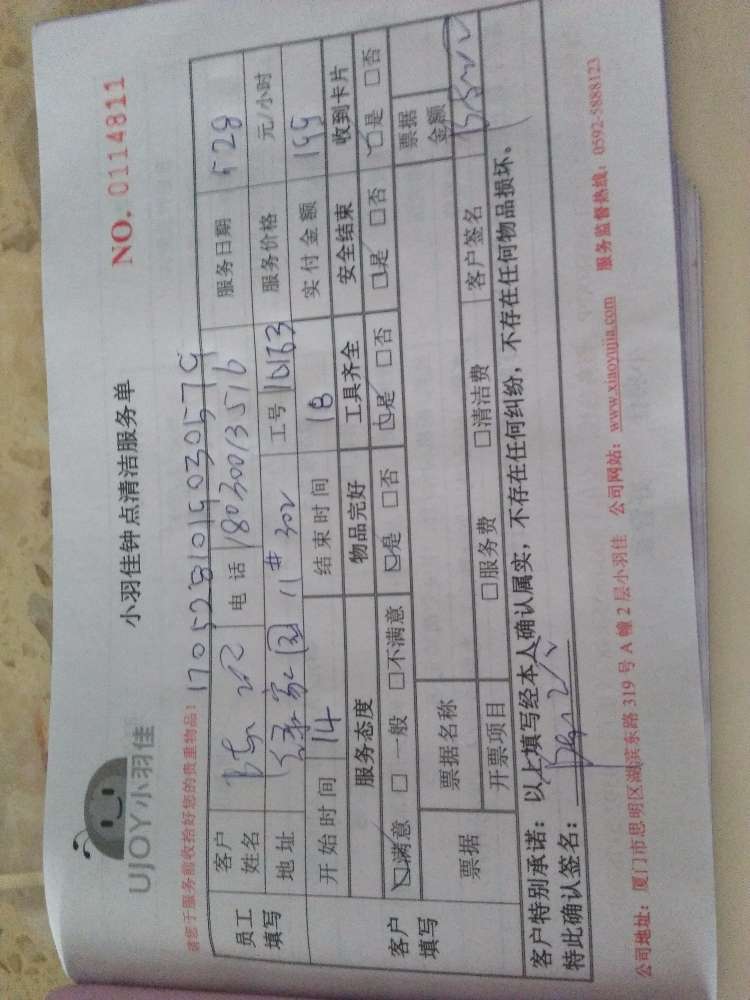 UJOY小羽佳
小羽佳钟点清洁服务单
NO. 0114811
请您于服务前收拾好您的贵重物品！
170528101903057 9
员工填写 客户姓名 电话 18030013516 服务日期 528
地址 11# 302 工号 10163 服务价格 元/小时
开始时间 14 结束时间 18 实付金额 199
客户填写 服务态度 物品完好 工具齐全 安全结束 收到卡片
☑满意 □一般 □不满意 ☑是 □否 ☑是 □否 ☑是 □否 ☑是 □否
票据 票据名称 票据金额
开票项目 □服务费 □清洁费 客户签名
客户特别承诺：以上填写经本人确认属实，不存在任何纠纷，不存在任何物品损坏。
特此确认签名：
公司地址：厦门市思明区湖滨东路 319 号 A 幢 2 层小羽佳 公司网站：www.xiaoyujia.com 服务监督热线：0592-5888123